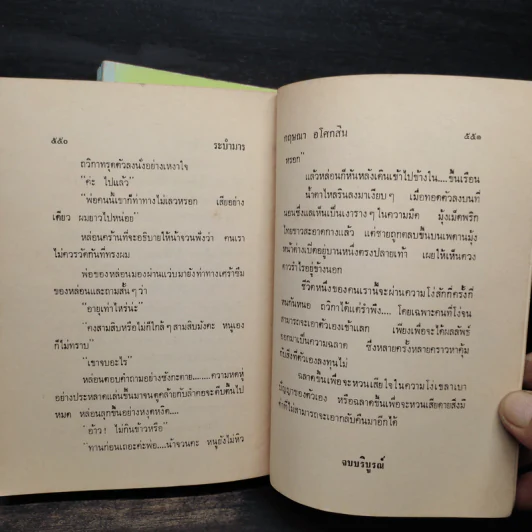 ๕๕๐ ระบำมาร
ถวิกาทรุดตัวลงนั่งอย่างเหงาใจ
"ค่ะ ไปแล้ว"
"พ่อคนนี้เขาก็ท่าทางไม่เลวหรอก เสียอย่าง
เดียว ผมยาวไปหน่อย"
หล่อนคร้านที่จะอธิบายให้น้าจวนฟังว่า คนเรา
ไม่ควรวัดกันที่ทรงผม
พ่อของหล่อนมองผ่านแว่นมายังท่าทางเศร้าซึม
ของหล่อนและถามสั้น ๆ ว่า
"อายุเท่าไหร่น่ะ"
"คงสามสิบหรือไม่ก็ใกล้ ๆ สามสิบมังคะ หนูเอง
ก็ไม่ทราบ"
"เขาจบอะไร"
หล่อนตอบคำถามอย่างซังกะตาย........ความหดหู่
อย่างประหลาดแล่นขึ้นมาจนดูคล้ายกับลำคอจะตีบตันไป
หมด หล่อนลุกขึ้นอย่างหงุดหงิด....
"อ้าว! ไม่กินข้าวหรือ"
"ทานก่อนเถอะค่ะพ่อ....น้าจวนคะ หนูยังไม่หิว
กฤษณา อโศกสิน ๕๕๑
หรอก"
แล้วหล่อนก็หันหลังเดินเข้าไปข้างใน....ขึ้นเรือน
น้ำตาไหลรินลงมาเงียบ ๆ เมื่อทอดตัวลงบนที่
นอนซึ่งแลเห็นเป็นเงาราง ๆ ในความมืด มุ้งเม็ดพริก
ไทยขาวสะอาดกางแล้ว แต่ชายถูกตลบขึ้นบนเพดานมุ้ง
หน้าต่างเปิดอยู่บานหนึ่งตรงปลายเท้า เผยให้เห็นดวง
ดาวรำไรอยู่ข้างนอก
ชีวิตหนึ่งของคนเรานี้จะผ่านความโง่สักกี่ครั้งก็
หนอ ถวิกาได้แต่รำพึง.... โดยเฉพาะคนที่โง่จน
สามารถจะเอาตัวเองเข้าแลก เพียงเพื่อจะได้ผลลัพธ์
ออกมาเป็นความฉลาด ซึ่งหลายครั้งหลายคราวหาคุ้ม
กับสิ่งที่ตัวเองลงทุนไม่
ฉลาดขึ้นเพื่อจะหวนเสียใจในความโง่เขลาเบา
ปัญญาของตัวเอง หรือฉลาดขึ้นเพื่อจะหวนเสียดายสิ่งมี
ค่าที่ไม่สามารถจะเอากลับคืนมาอีกได้
จบบริบูรณ์